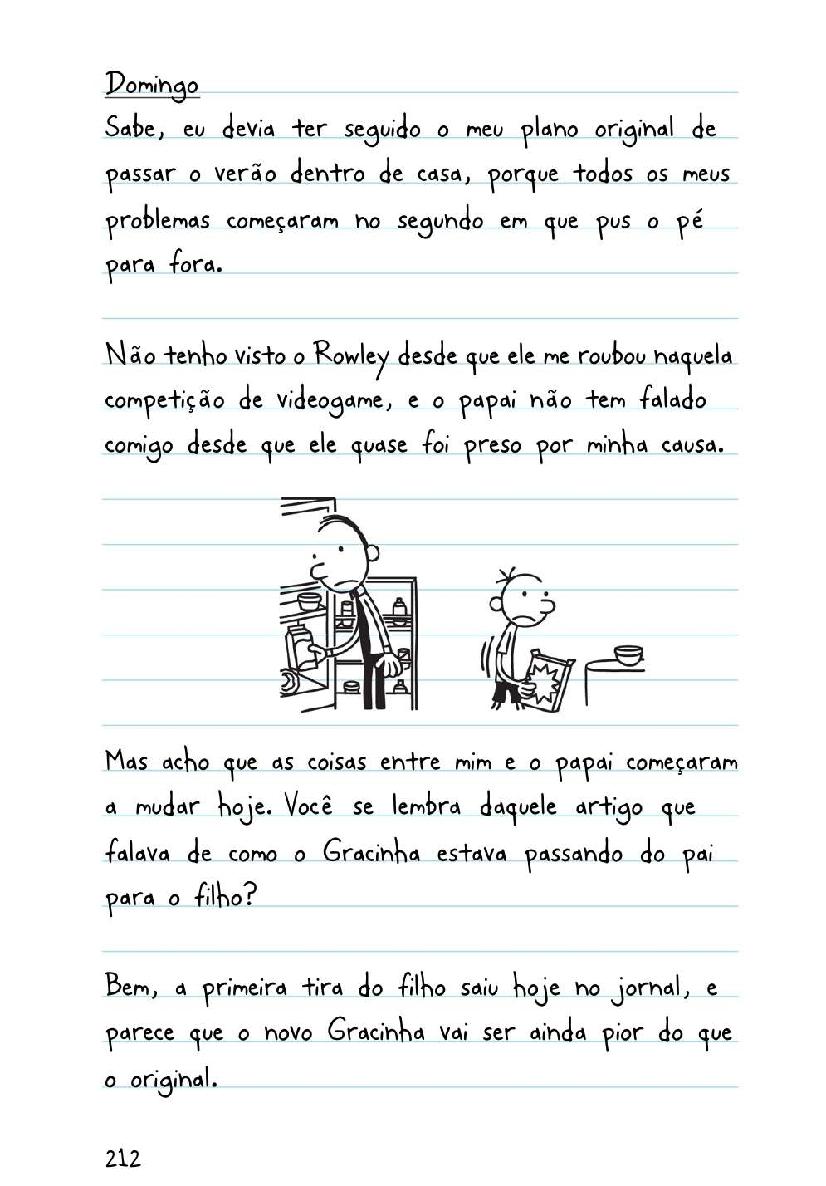 Domingo
Sabe, eu devia ter seguido o meu plano original de
passar o verão dentro de casa, porque todos os meus
problemas começaram no segundo em que pus o pé
para fora.
Não tenho visto o Rowley desde que ele me roubou naquela
competição de videogame, e o papai não tem falado
comigo desde que ele quase foi preso por minha causa.
Mas acho que as coisas entre mim e o papai começaram
a mudar hoje. Você se lembra daquele artigo que
falava de como o Gracinha estava passando do pai
para o filho?
Bem, a primeira tira do filho saiu hoje no jornal, e
parece que o novo Gracinha vai ser ainda pior do que
o original.
212